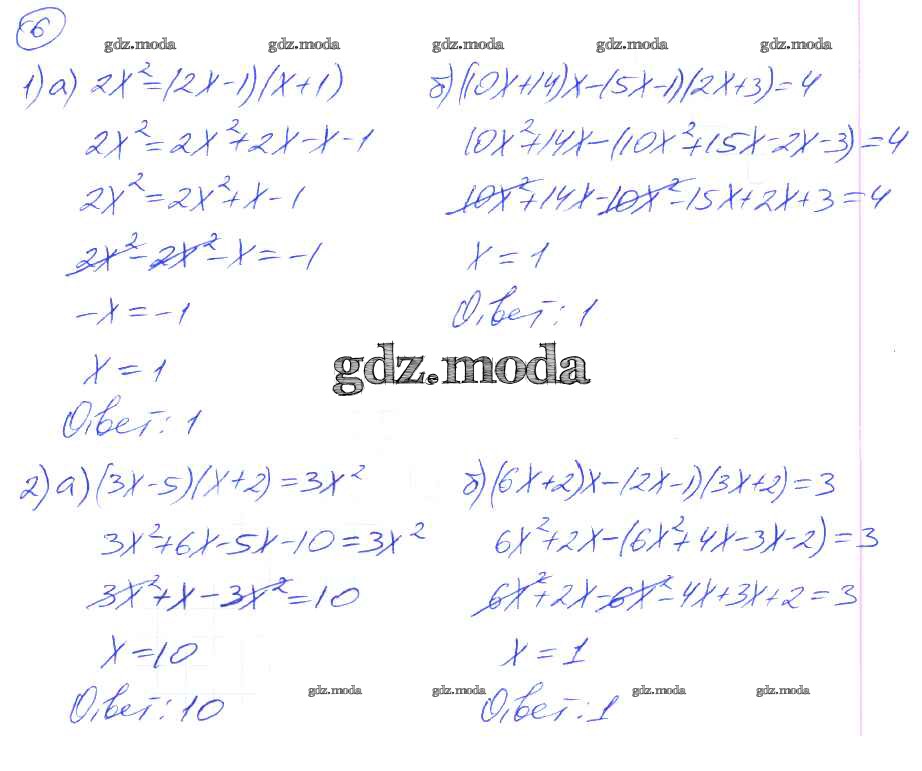 6
gdz.moda gdz.moda gdz.moda gdz.moda gdz.moda
1) а) 2x²=(2x-1)(x+1)
2x²=2x²+2x-x-1
2x²=2x²+x-1
2x²-2x²-x=-1
-x=-1
x=1
Ответ: 1
б) (10x+14)x-(5x-1)(2x+3)=4
10x²+14x-(10x²+15x-2x-3)=4
10x²+14x-10x²-15x+2x+3=4
x=1
Ответ: 1
gdz.moda
2) а) (3x-5)(x+2)=3x²
3x²+6x-5x-10=3x²
3x²+x-3x²=10
x=10
Ответ: 10
б) (6x+2)x-(2x-1)(3x+2)=3
6x²+2x-(6x²+4x-3x-2)=3
6x²+2x-6x²-4x+3x+2=3
x=1
Ответ: 1
gdz.moda gdz.moda gdz.moda gdz.moda